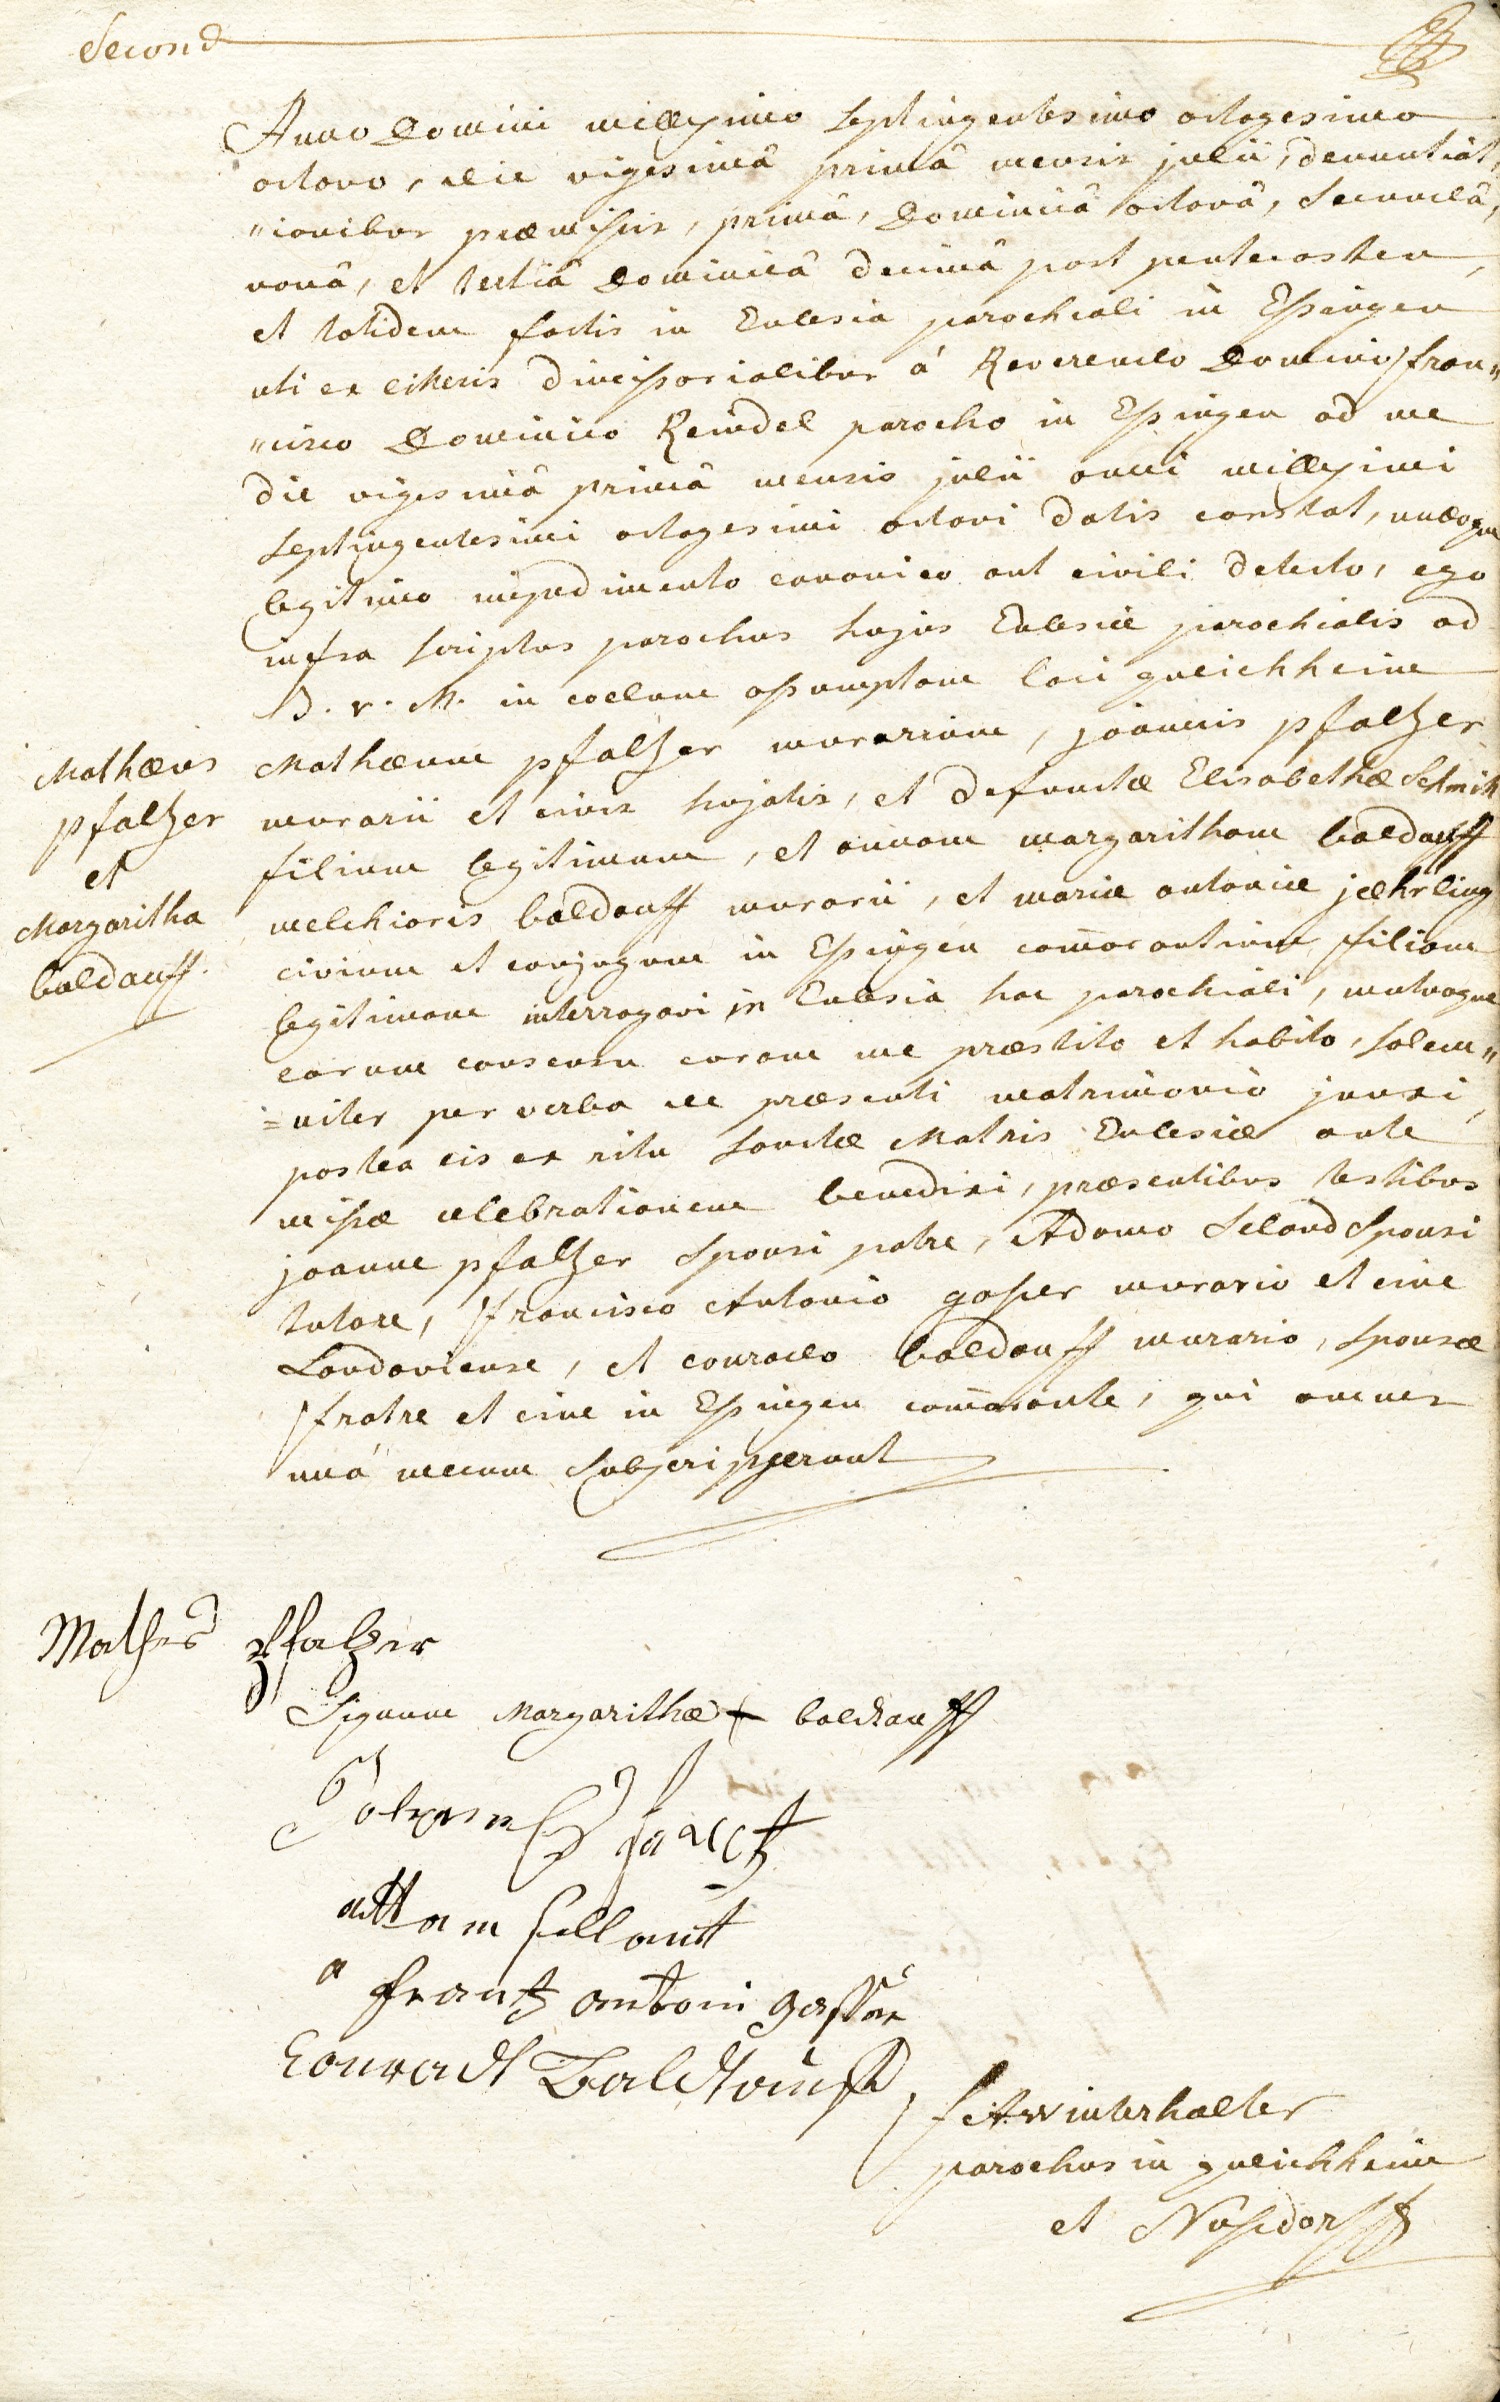 Second
Anno Domini millesimo septingentesimo octogesimo
octavo, die vigesimâ primâ mensis julii, denuntiat,
"ionibus præmissis, primâ, Dominicâ octavâ, secundâ,
nonâ, et tertiâ Dominicâ decimâ post pentecosten,
et totidem factis in Ecclesia parochiali in Essingen
uti ex litteris dimissorialibus á Reverendo Domino fran"
"cisco Dominico Reindel parocho in Essingen ad me
die vigesimâ primâ mensis julii anni millesimi
septingentesimi octogesimi octavi datis constat, nulloque
legitimo impedimento canonico aut civili detecto, ego
infra scriptus parochus hujus Ecclesiæ parochialis ad
B. v. M. in coelum assumptam loci queichheim
Mathæus
pfaltzer
et
Margaritha
baldauff.
Mathæum pfaltzer murarium, joannis pfaltzer
murarii et civis hujatis, et defunctæ Elisabethæ Schmitt
filium legitimum, et annam margaritham baldauff
melchioris baldauff murarii, et mariæ antoniæ jæhrling
civium et conjugum in Essingen com̄orantium filiam
legitimam interrogavi in Ecclesia hac parochiali, mutuoque
eorum consensu coram me præstito et habito, solem"
=niter per verba de præsenti matrimonio junxi,
postea eis ex ritu sanctæ Matris Ecclesiæ ante
missæ celebrationem benedixi, præsentibus testibus
joanne pfaltzer sponsi patre, Adamo Seland sponsi
tutore, francisco Antonio gasser murario et cive
Landaviense, et conrado baldauff murario, sponsæ
fratre et cive in Essingen com̄orante, qui omnes
unâ mecum subscripserunt
Mathes Pfaltzer
Signum Margarithæ + baldauff
Johann
attam sellantt
frantz antoni gasser
Conradt Baldtauff
f A winterhalter
parochus in queichheim
et Nusdorff